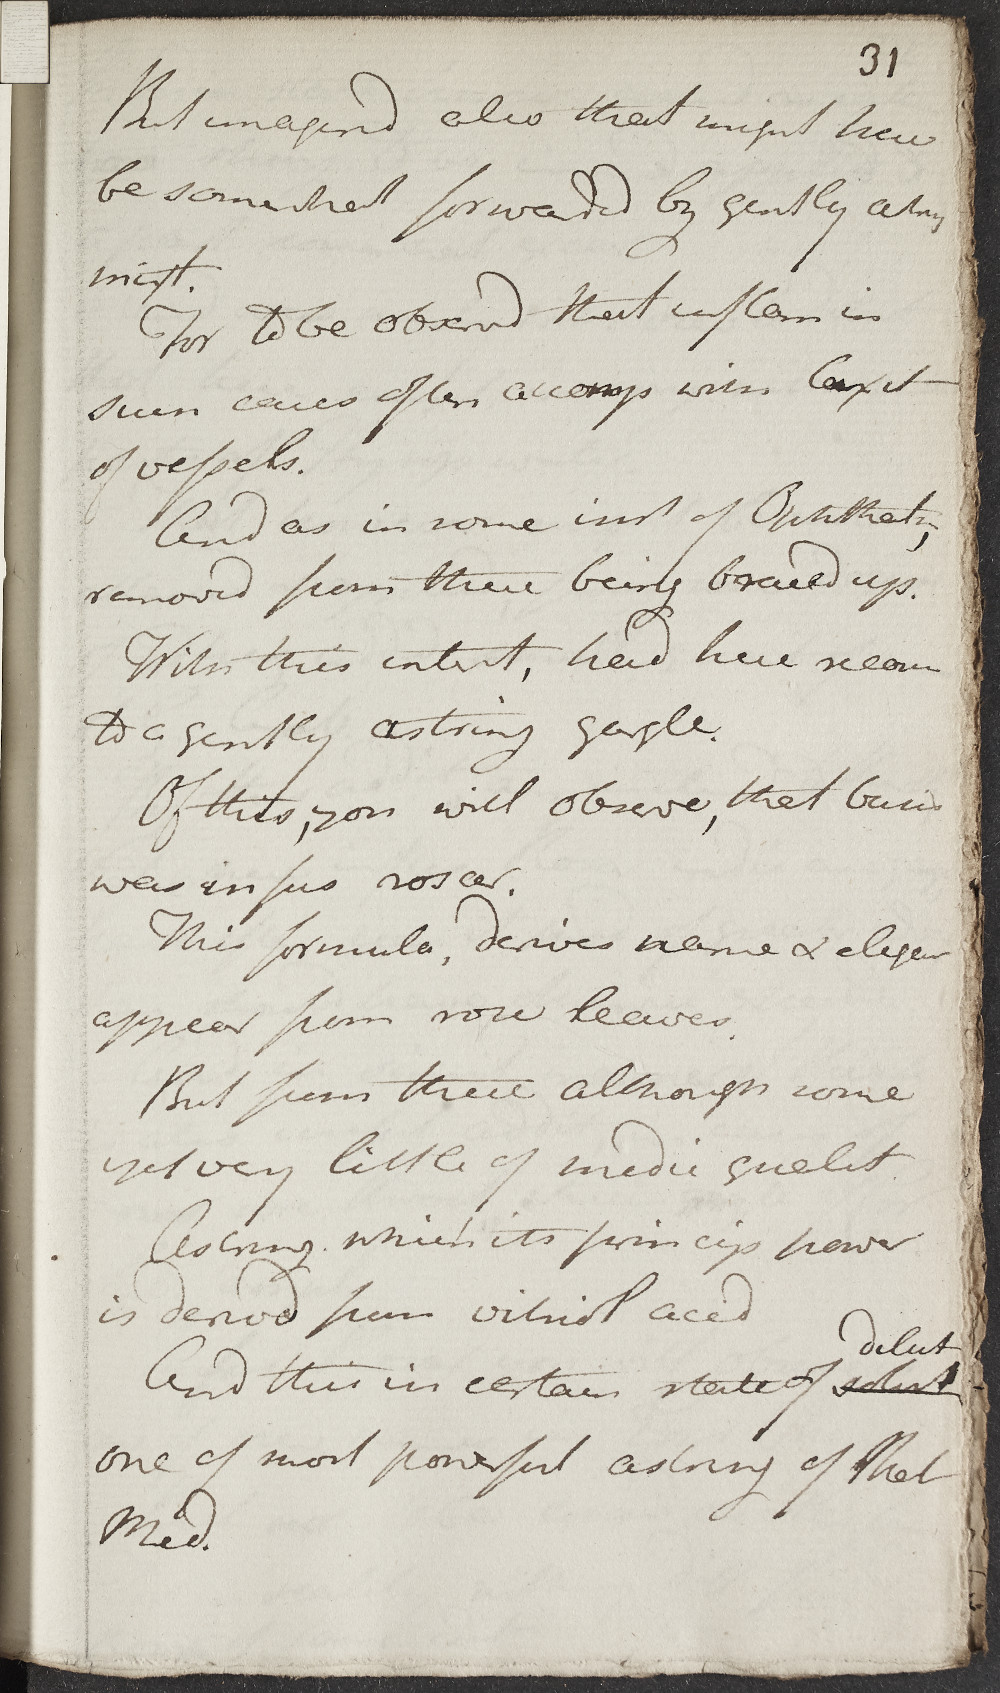 31
But imagend also that might here
be somewhat forwarded by gently astring
mixt.
For to be observd that inflam in
such cases often accomp with laxit
of vessels.
And as in some inst of Ophthalm,
removd from these being braced up.
With this intent, had here recom
to a gently astring gargle.
Of this, you will observe, that basis
was infus rosar.
This formula, derives name & elegan
appear from rose leaves.
But from these although some
yet very little of medic qualit
Astring. which its princip power
is derivd from vitriol acid
dilut
And this in certain state of solut
one of most powerful astring of Mat
Med.